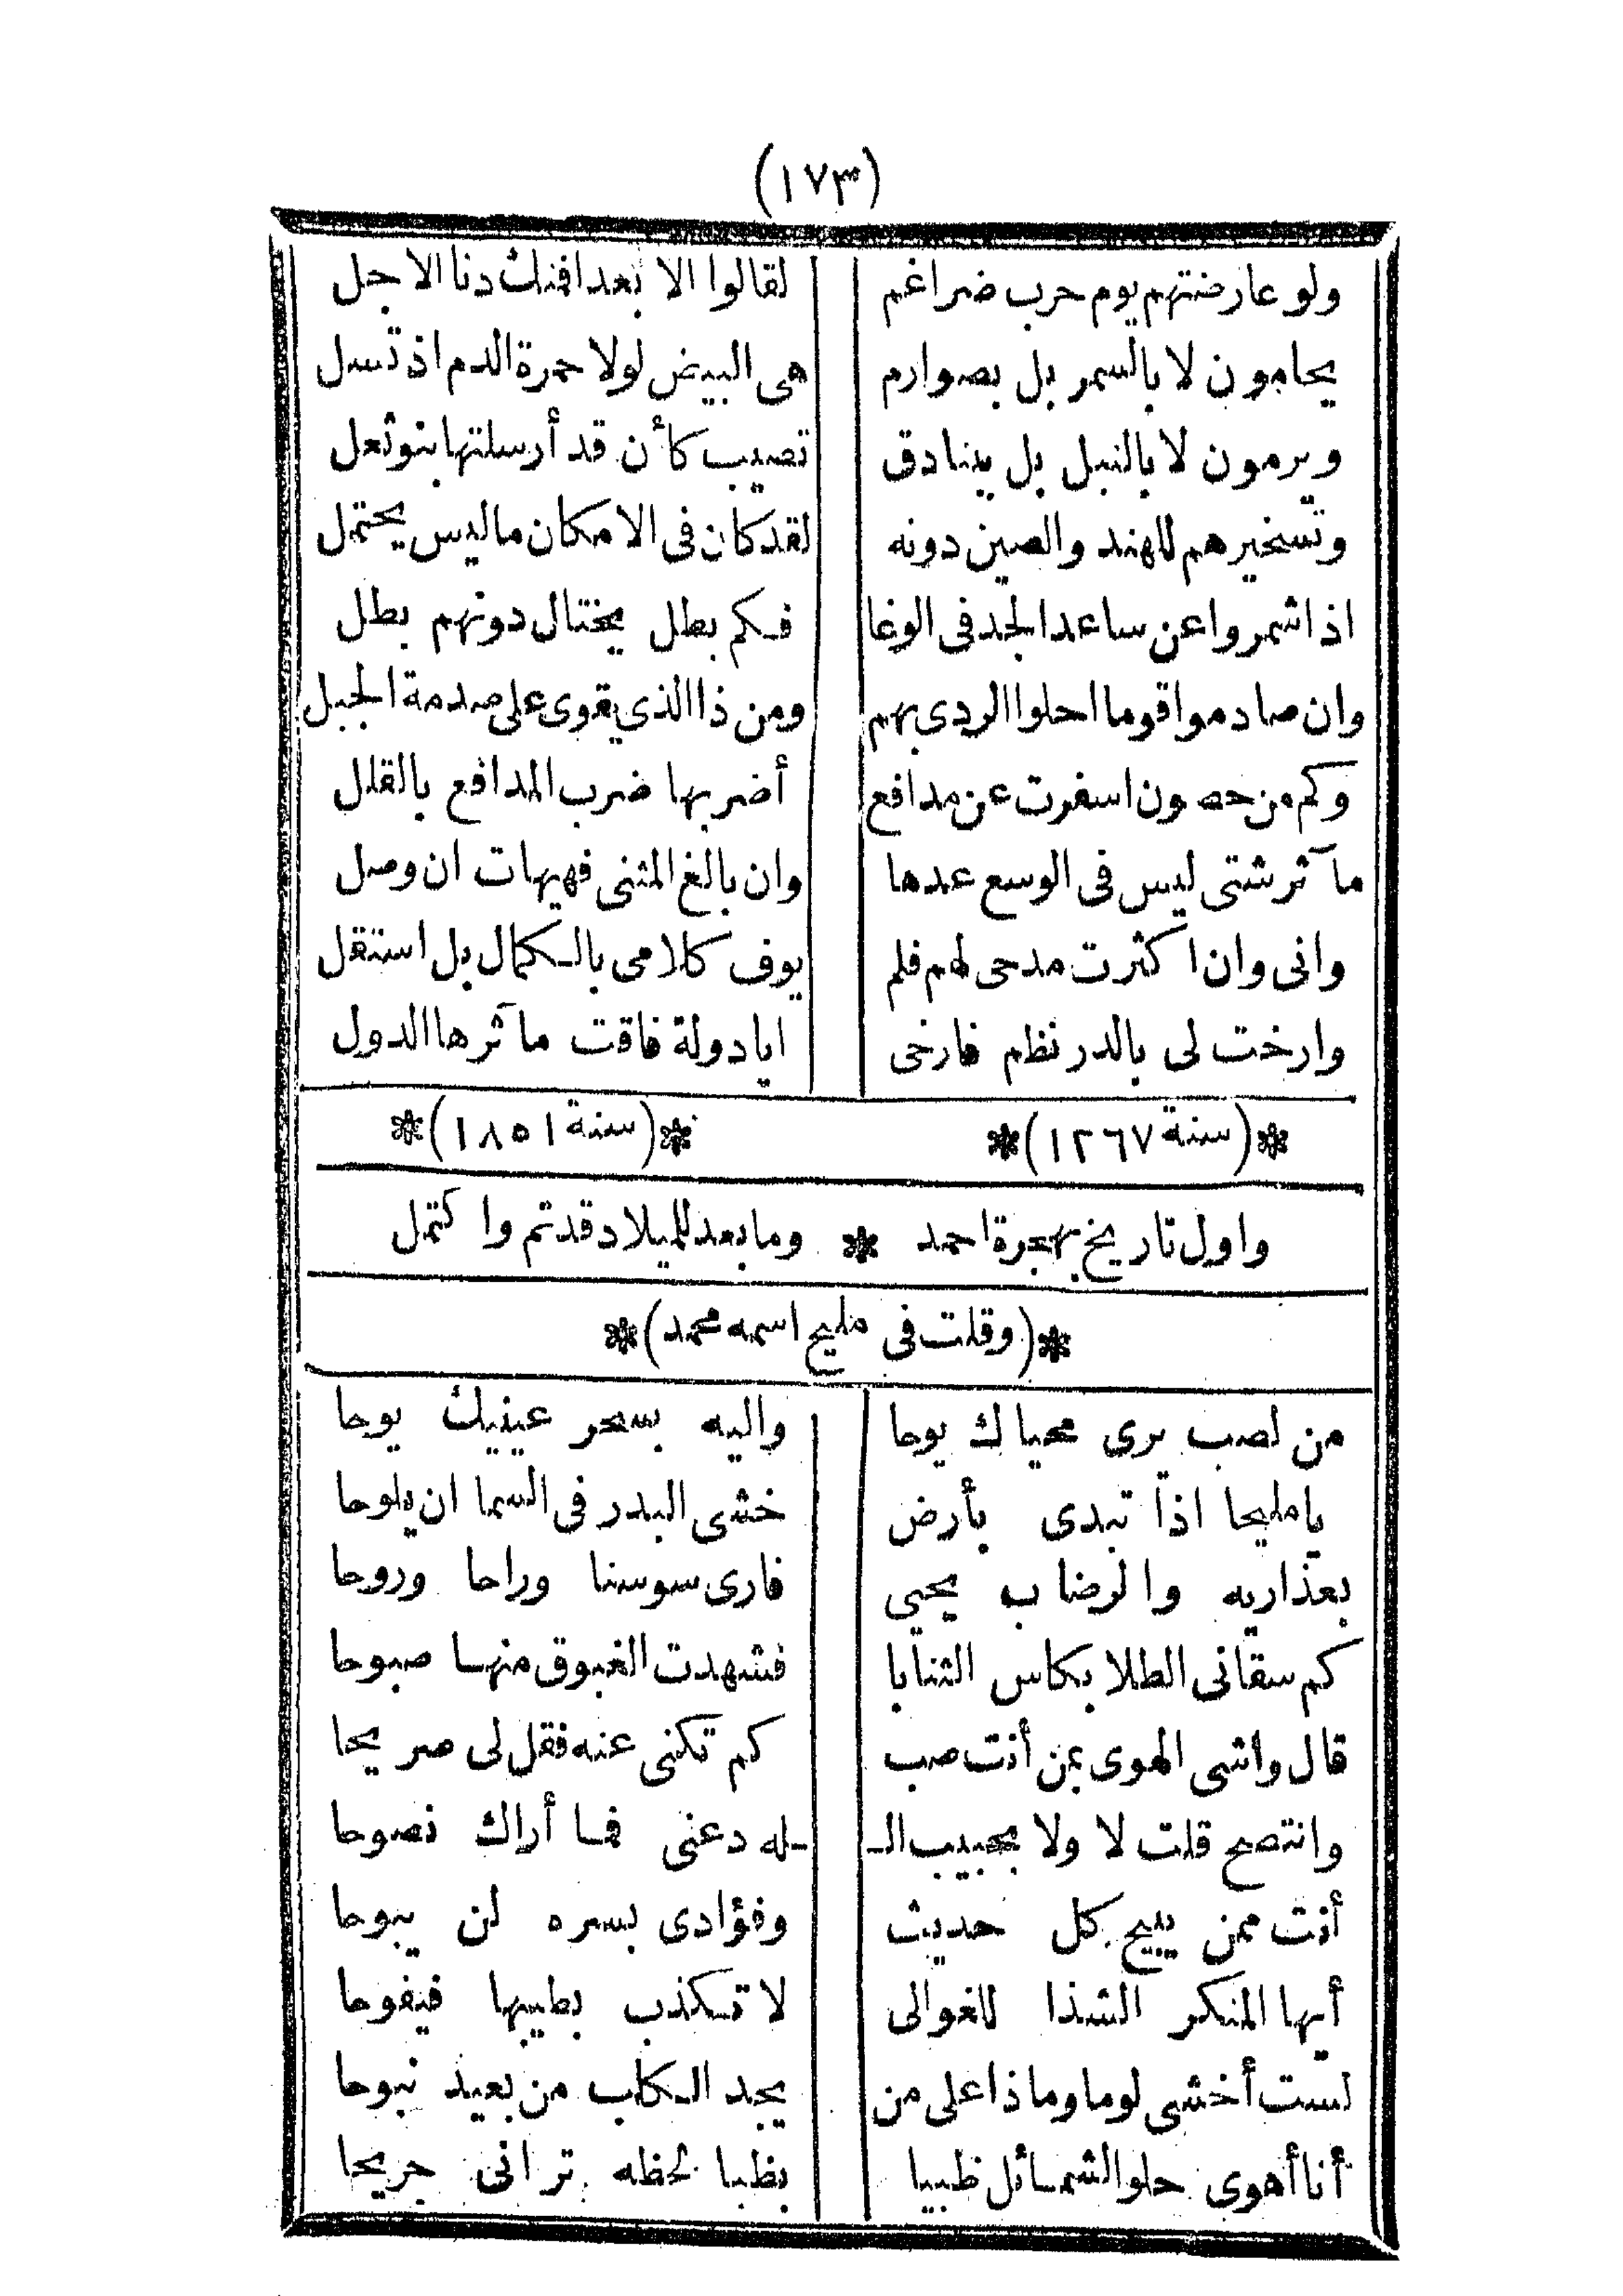 (١٧٣)
ولو عارضتهم يوم حرب ضراغم لقالوا الا بعدا فمنك دنا الاجل
يحامون لا بالسمر بل بصوارم هى البيض لولا حمرة الدم اذ تسل
ويرمون لا بالنبل بل ببنادق تصيب كأن قد أرسلتها بنو ثعل
وتسخيرهم للهند والصين دونه لقد كان فى الامكان ما ليس يحتمل
اذا شمروا عن ساعد الجد فى الوغا فكم بطل يختال دونهم بطل
وان صادموا قوما احلوا الردى بهم ومن ذا الذى يقوى على صدمة الجبل
وكم من حصون اسفرت عن مدافع أضر بها ضرب المدافع بالقلل
مآثر شتى ليس فى الوسع عدها وان بالغ المثنى فهيهات ان وصل
وانى وان اكثرت مدحى لهم فلم يوف كلامى بالكمال بل استقل
وارخت لى بالدر نظم فارخى ايا دولة فاقت مآثرها الدول
*(سنة ١٢٦٧)* *(سنة ١٨٥١)*
واول تاريخ بهجرة احمد * وما بعد للميلاد قد تم واكتمل
*(وقلت فى مليح اسمه محمد)*
من لصب يرى محياك يوحا واليه بسحر عينيك يوحا
يا مليحا اذا تبدى بأرض خشى البدر فى السما ان يلوحا
بعذاريه والرضاب يحيى فارى سوسنا وراحا وروحا
كم سقانى الطلا بكاس الثنايا فشهدت الغبوق منها صبوحا
قال واشى الهوى بمن أنت صب كم تكنى عنه فقل لى صريحا
وانتصح قلت لا ولا بحبيب الـ ـله دعنى فما أراك نصوحا
أنت ممن يبيح كل حديث وفؤادى بسره لن يبوحا
أيها المنكر الشذا للغوالى لا تكذب بطيبها فيفوحا
لست أخشى لوما وماذا على من يجد الكلب من بعيد نبوحا
أنا أهوى حلو الشمائل ظبيا بظبا لحظه ترانى جريحا